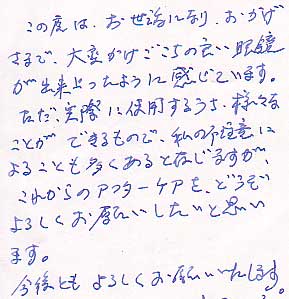 この度は、お世話になり、おかげ
さまで、大変かけごこちの良い眼鏡
が出来上ったように感じています。
ただ、実際に使用するうち、様々な
ことが できるもので、私の不注意に
よることも多くあると存じますが、
これからのアフターケアを、どうぞ
よろしくお願いしたいと思い
ます。
今後とも よろしくお願いいたします。